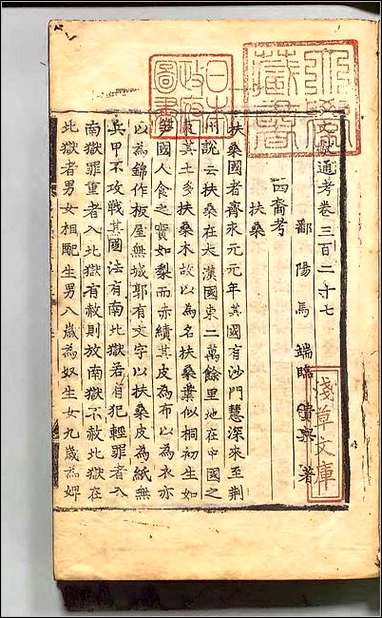 文獻通考卷三百二十七
鄱陽馬端臨貴與著
四裔考
扶桑
扶桑國者齊永元元年其國有沙門慧深來至荆
州說云扶桑在大漢國東二萬餘里地在中國之
東其土多扶桑木故以為名扶桑葉似桐初生如
笋國人食之實如梨而赤績其皮為布以為衣亦
以為錦作板屋無城郭有文字以扶桑皮為紙無
兵甲不攻戰其國法有南北獄若有犯輕罪者入
南獄罪重者入北獄有赦則放南獄不赦北獄在
北獄者男女相配生男八歲為奴生女九歲為婢
日本
政府
圖書
淺草文庫